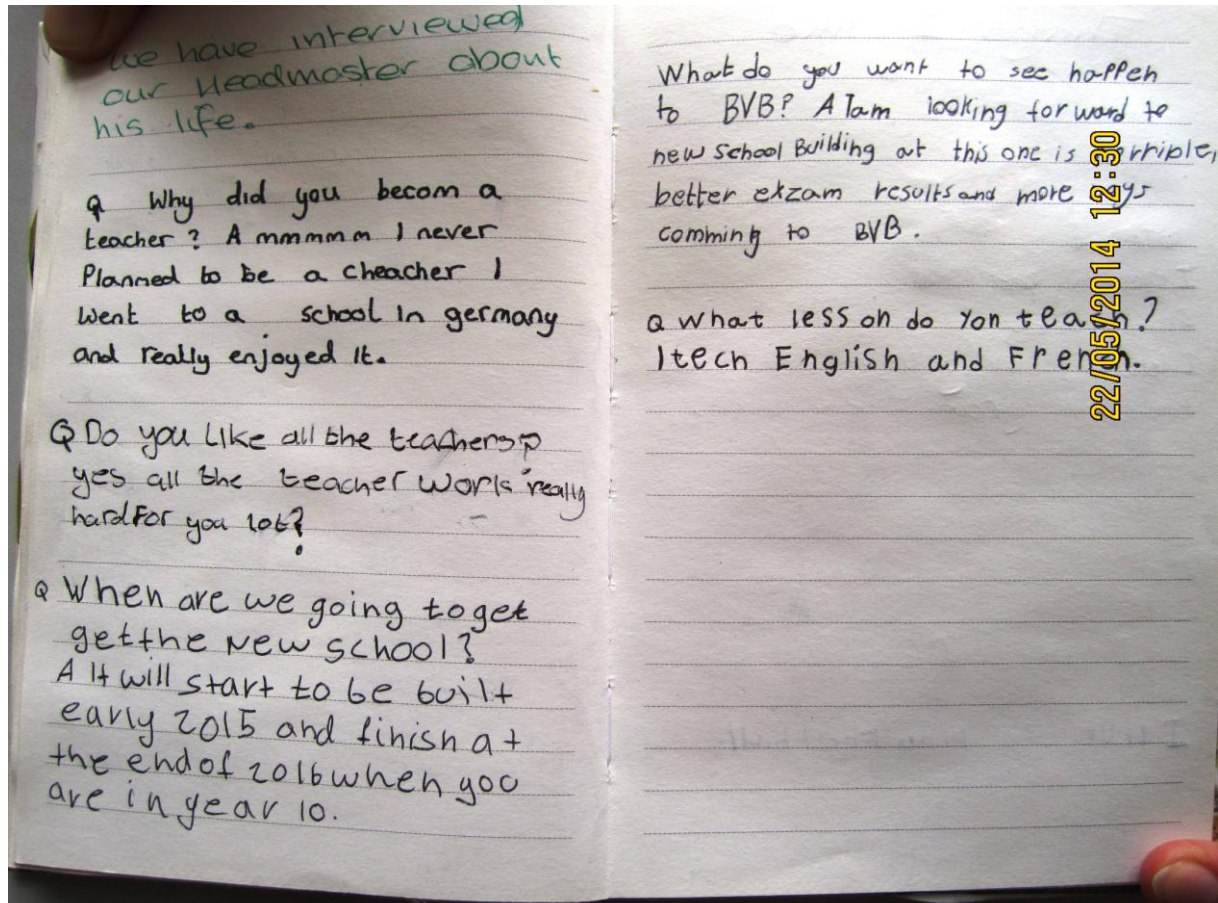 we have interviewed
our Headmaster about
his life.
Q Why did you becom a
teacher? A mmmmm I never
Planned to be a cheacher I
Went to a school in germany
and really enjoyed it.
Q Do you Like all the teachers?
yes all the teacher work really
hard For you lot?
Q When are we going to get
get the New school?
A It will start to be built
early 2015 and finish at
the end of 2016 when you
are in year 10.
What do you want to see happen
to BVB? A I am looking forward to
new School Building at this one is terrible,
better ekzam results and more
comming to BVB.
Q What lesson do you teach?
I tech English and French.
22/05/2014 12:30